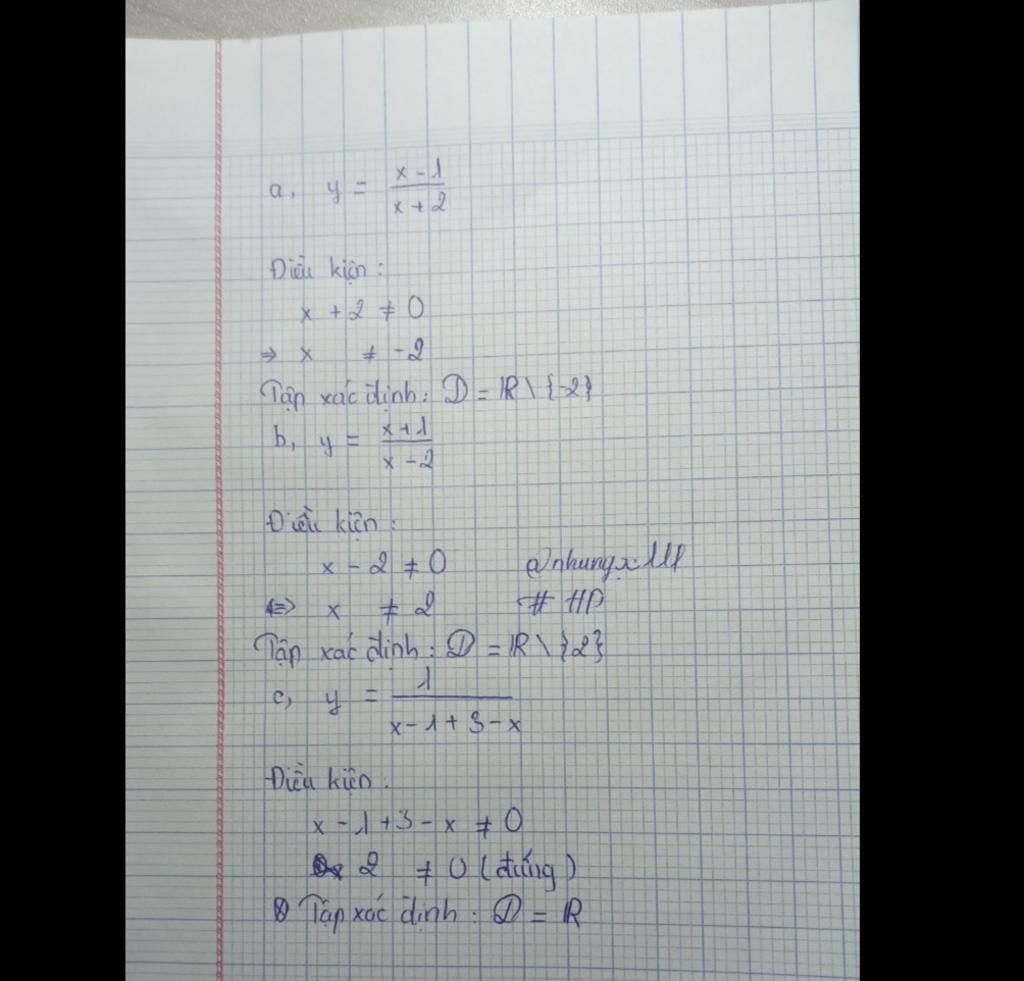 a, y = x-1 / x+2
Điều kiện:
x + 2 ≠ 0
⇒ x ≠ -2
Tập xác định: D = ℝ \ {-2}
b, y = x+1 / x-2
Điều kiện:
x - 2 ≠ 0 @nhungx
⇔ x ≠ 2 # HP
Tập xác định: D = ℝ \ {2}
c, y = 1 / x-1+3-x
Điều kiện:
x - 1 + 3 - x ≠ 0
2 ≠ 0 (đúng)
Tập xác định: D = ℝ